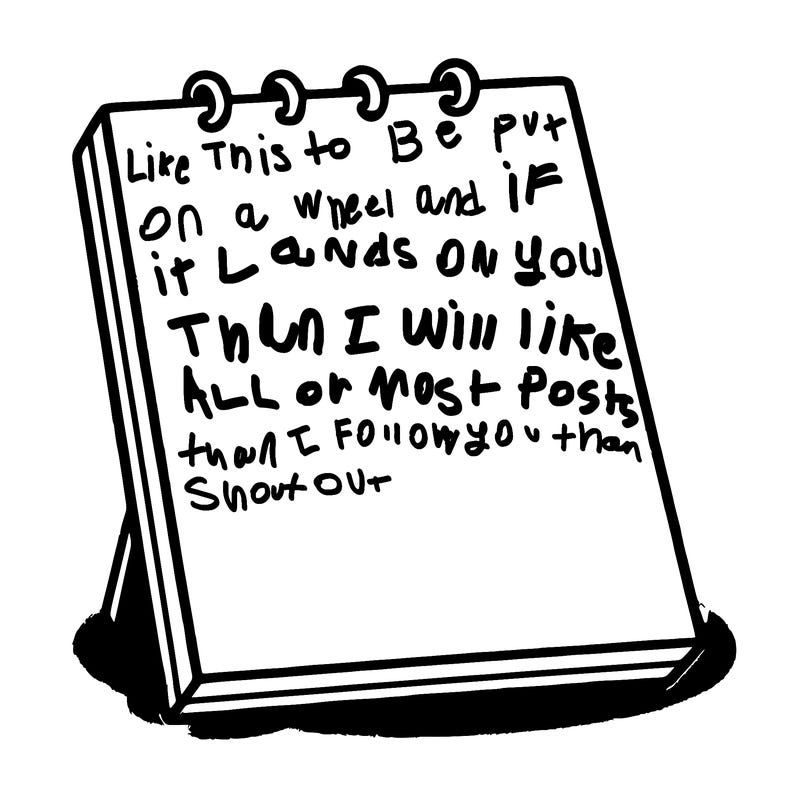 Like This to Be put
on a wheel and iF
it Lands ON you
Then I will like
ALL or most Posts
then I Follow you then
Shout out